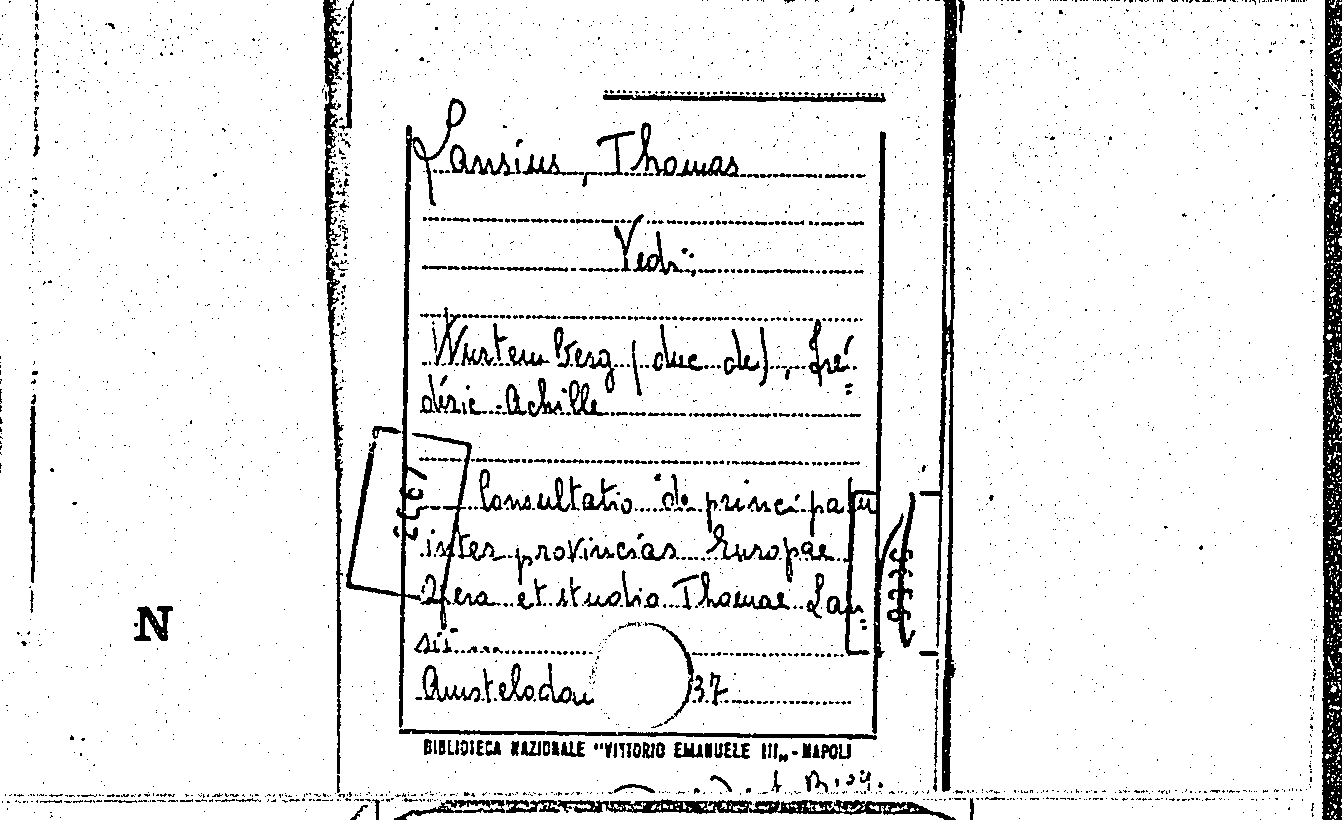 Lansius, Thomas
Vedi:
Wurtemberg (duc de), Fré=
déric-Achille
Consultatio de principatu
inter provincias Europae
Opera et studio Thomae Lan=
sii ...
Amstelodam 37
BIBLIOTECA NAZIONALE "VITTORIO EMANUELE III„ - NAPOLI
N